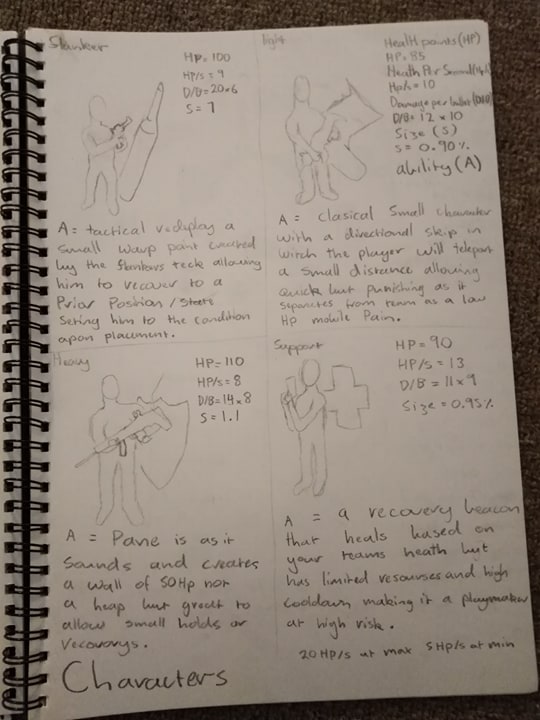 Slanker
HP = 100
HP/s = 9
D/B = 20x6
S = 1
A = tactical redeploy a
small warp point created
by the Slankers teck allowing
him to recover to a
Prior Position / State
Seting him to the condition
apon placment.
light
Health points (HP)
HP = 85
Heath Per Second (Hp/s)
Hp/s = 10
Damage per bullet (D/B)
D/B = 12 x 10
Size (S)
S = 0.90%
ability (A)
A = clasical Small charater
with a directional skip in
witch the player will teleport
a small distance allowing
quick but punishing as it
seperates from team as a low
HP mobile Pain.
Heavy
HP = 110
HP/s = 8
D/B = 14x8
S = 1.1
A = Pane is as it
Sounds and creates
a wall of 50Hp not
a heap but great to
allow small holds or
recoverys.
Support
HP = 90
HP/s = 13
D/B = 11x9
Size = 0.95%
A = a recovery beacon
that heals based on
your teams heath but
has limited resourses and high
cooldown making it a playmaker
at high risk.
20HP/s at max 5HP/s at min
Characters